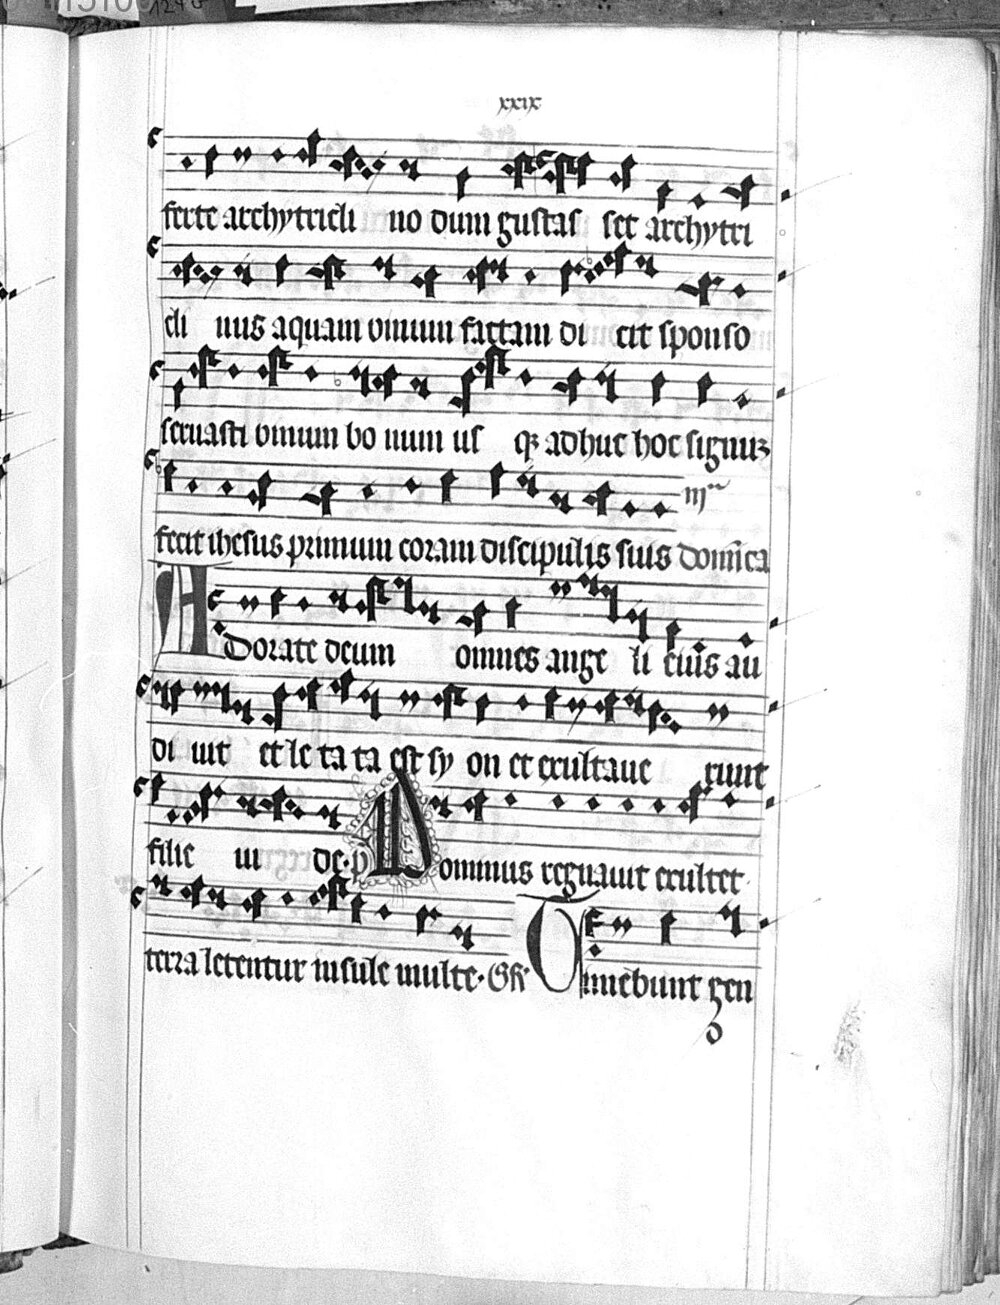 xxix
ferte archytricli no dum gustas set archytri
cli nus aquam uinum factam di cit sponso
seruasti uinum bo num us qꝫ adhuc hoc signuꝫ
fecit ihesus primum coram discipulis suis domīca
iijᵃ
Adorate deum omnes ange li eius au
di uit et le ta ta est sy on et exultaue runt
filie iu de. p̄ Dominus regnauit exultet
terra letentur insule multe. Gr̄ Timebunt gen